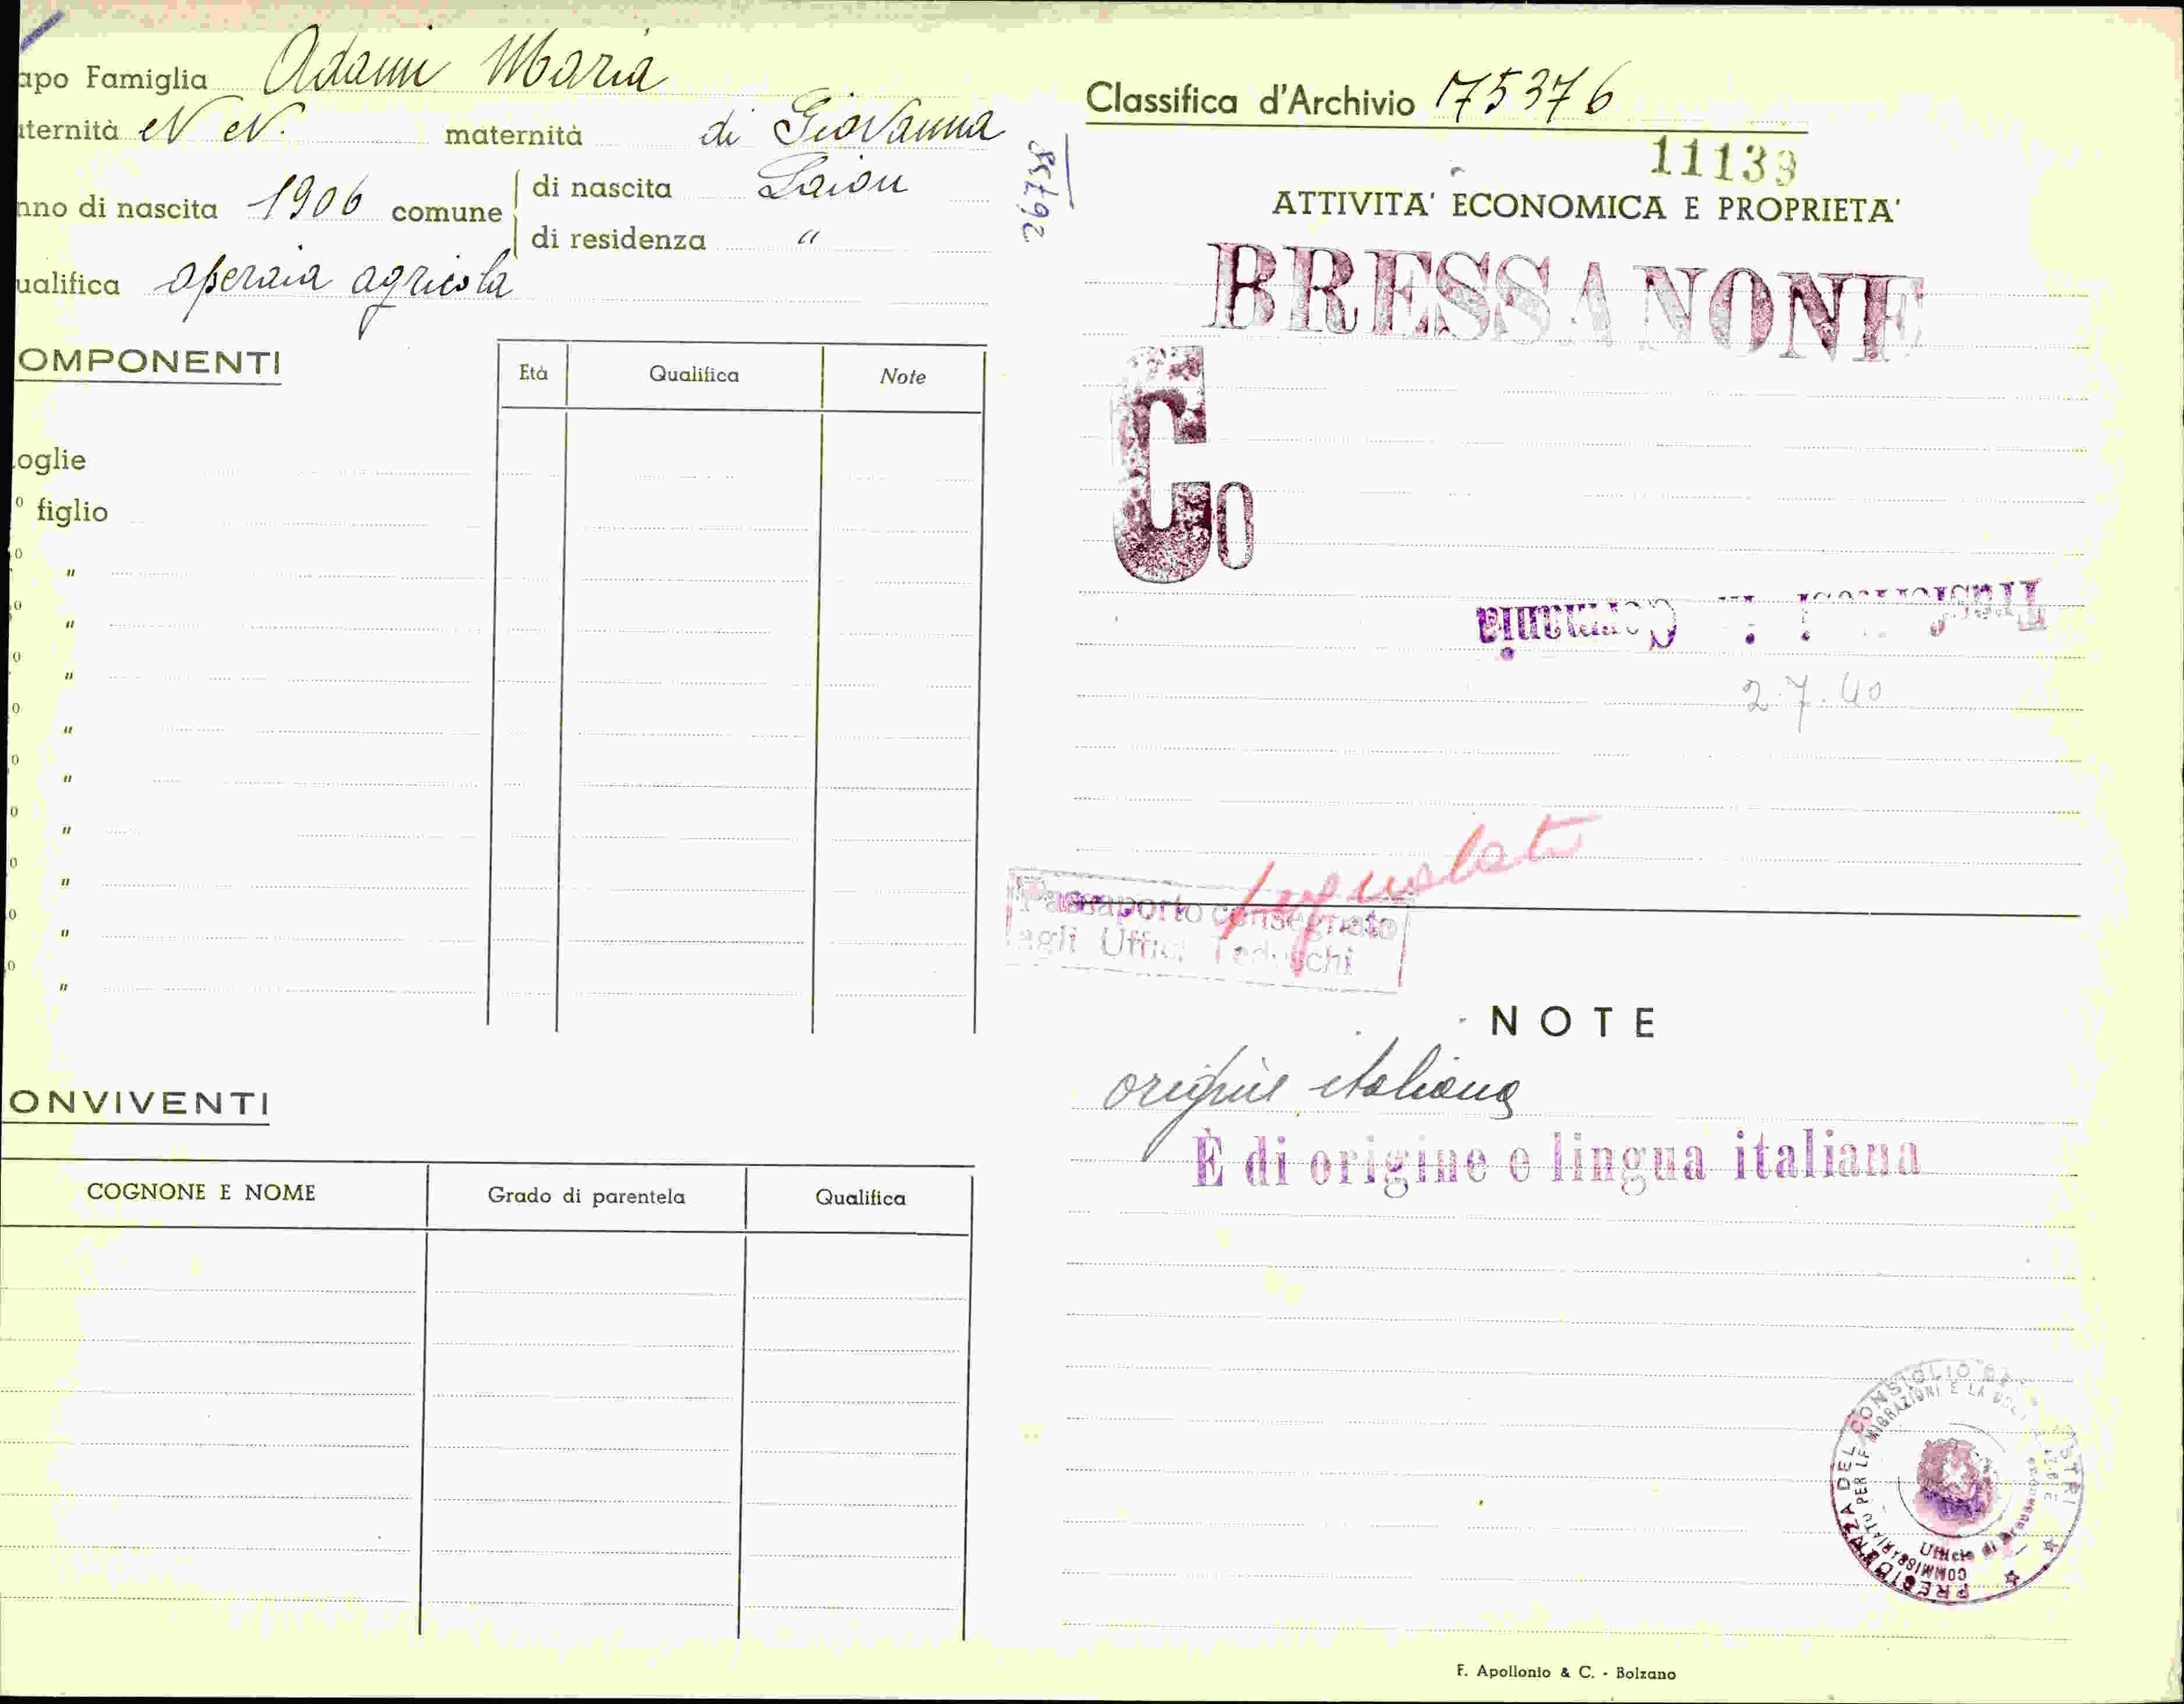 apo Famiglia Adami Maria
aternità N N. maternità di Giovanna
nno di nascita 1906 comune di nascita Laion
di residenza "
ualifica operaia agricola
OMPONENTI
Età Qualifica Note
oglie
° figlio
"
"
"
"
"
"
"
"
"
ONVIVENTI
COGNONE E NOME Grado di parentela Qualifica
Classifica d'Archivio 175376
11139
ATTIVITA' ECONOMICA E PROPRIETA'
BRESSANONE
Co
Trasferitosi in Germania
2.7.40
Passaporto consegnato
agli Uffici Tedeschi
NOTE
origine italiana
È di origine o lingua italiana
PRESIDENZA DEL CONSIGLIO DEI MINISTRI
COMMISSARIATO PER LE MIGRAZIONI E LA
Ufficio di Bressanone
F. Apollonio & C. - Bolzano